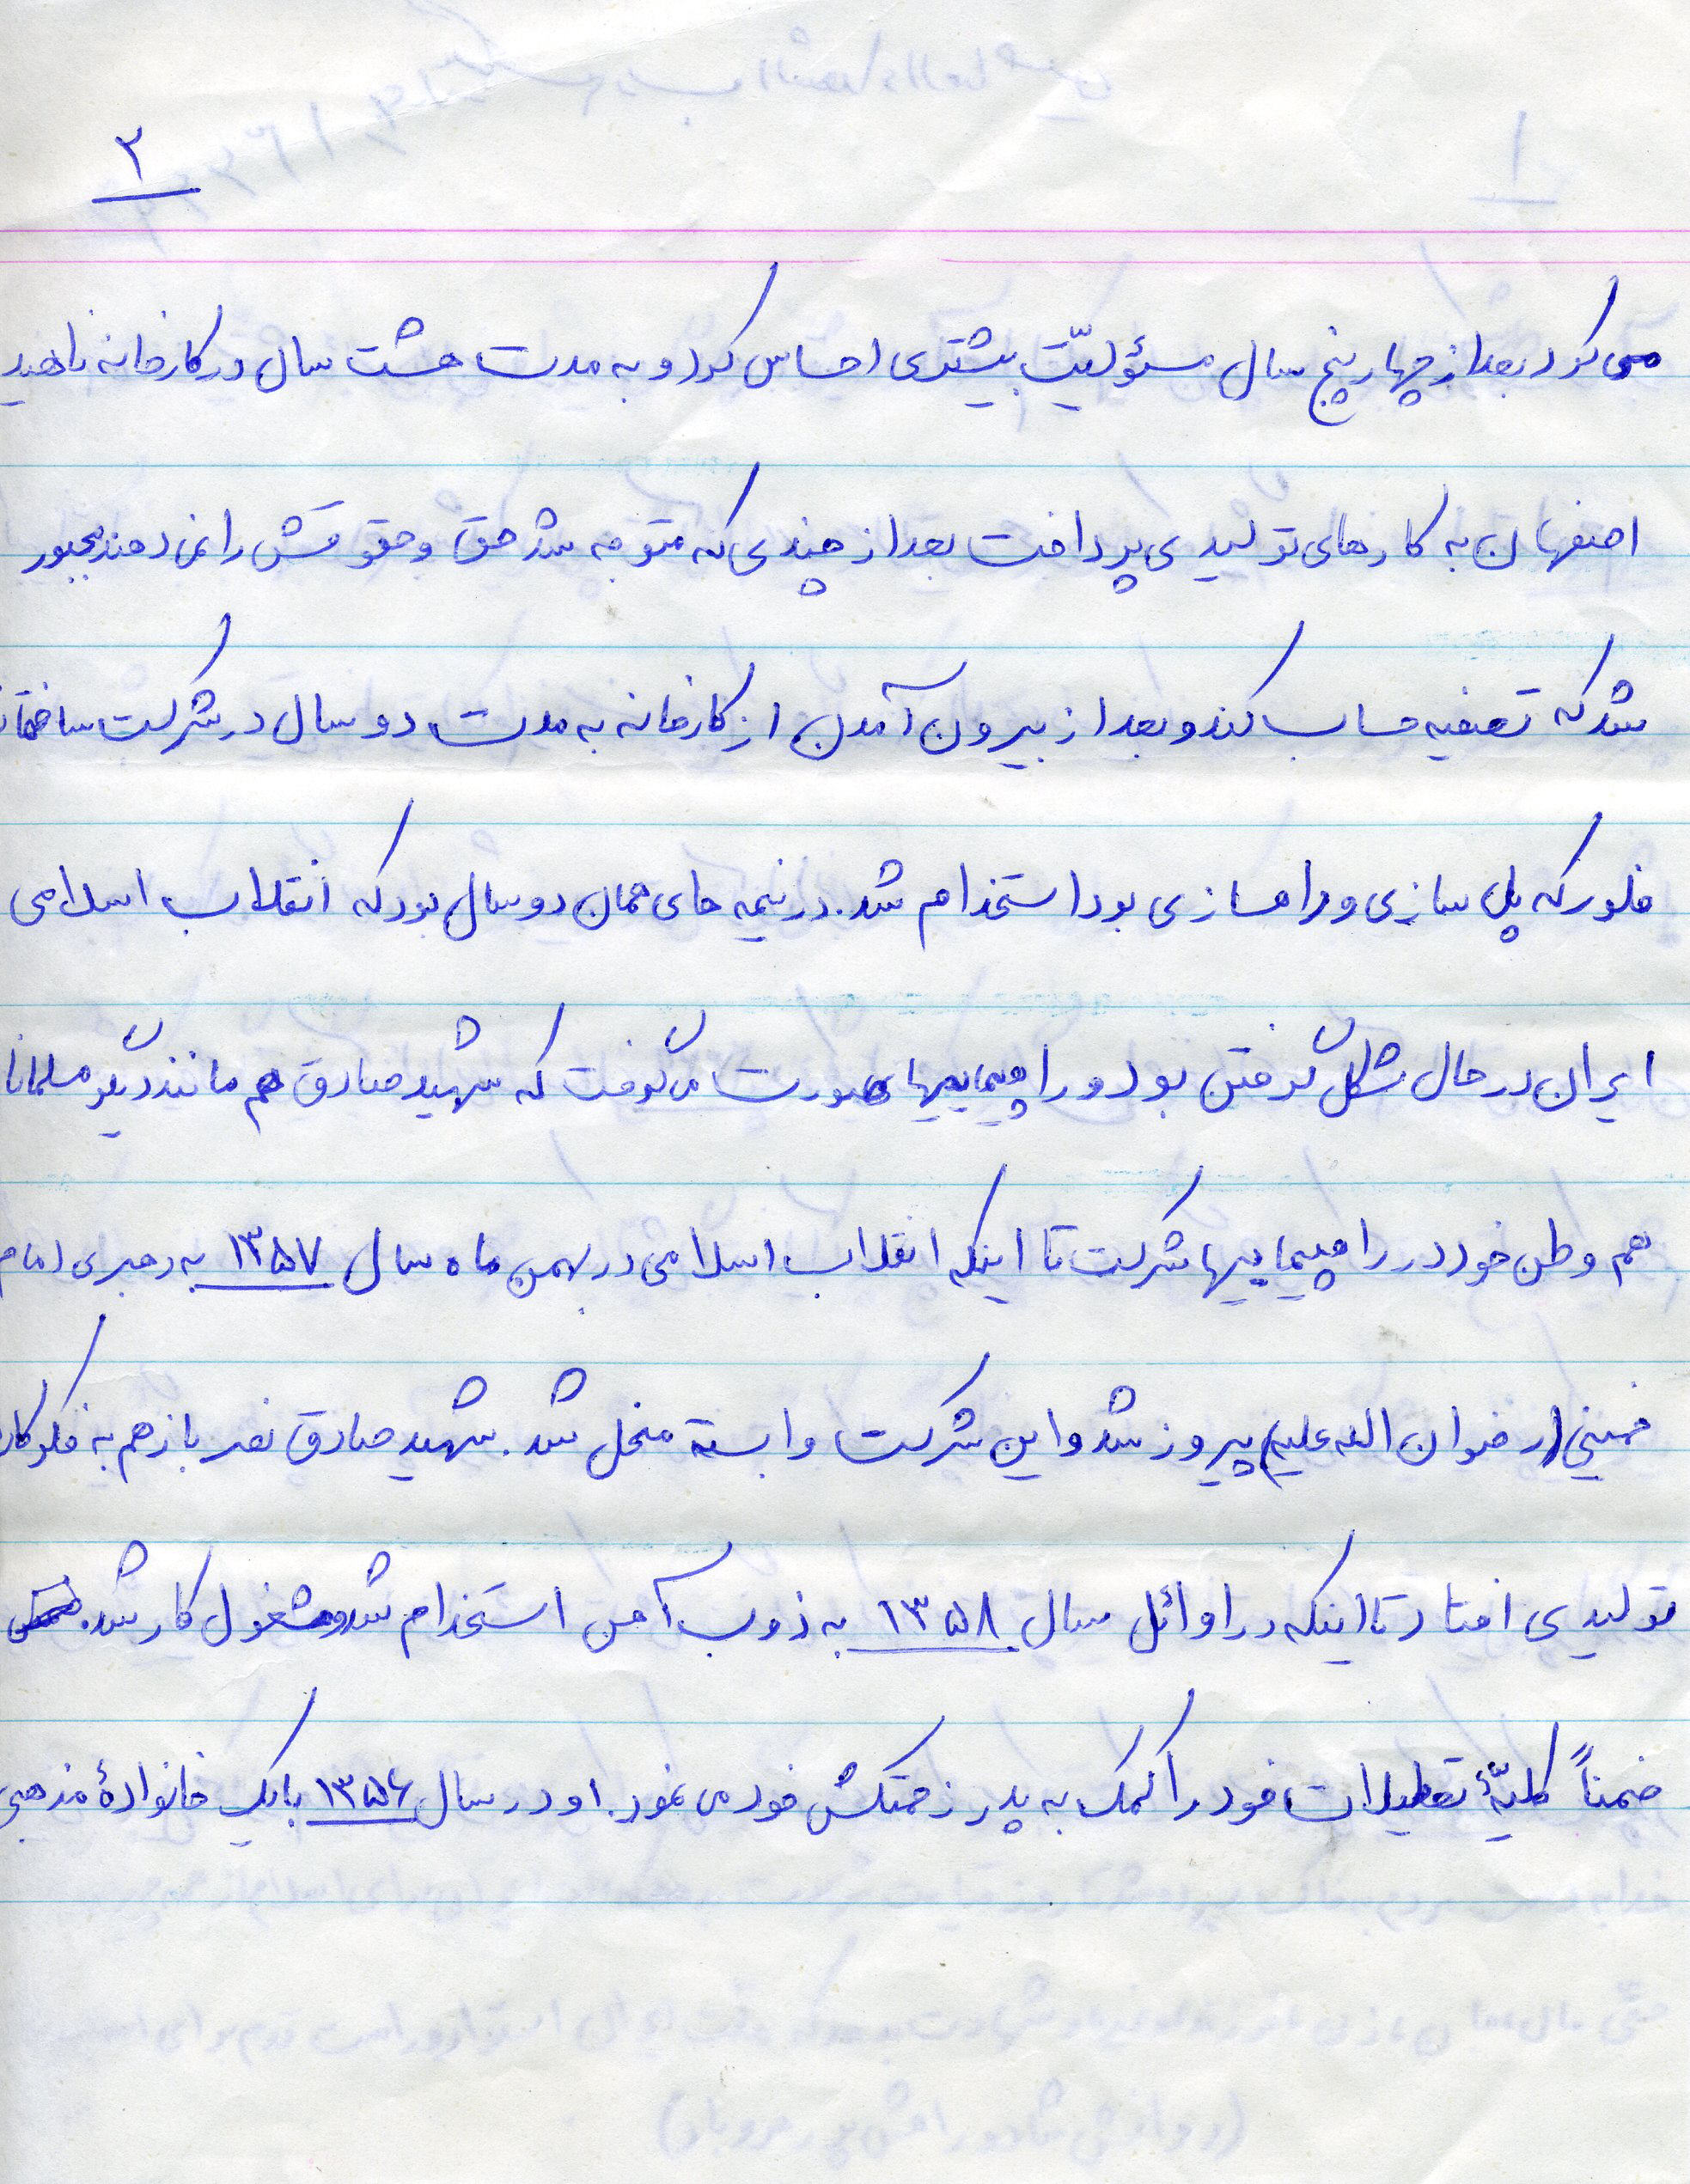 ۲
می کرد بعد از چهار پنج سال مسؤلیّت بیشتری احساس کرد و به مدت هشت سال در کارخانه ناهید
اصفهان به کارهای تولیدی پرداخت بعد از چندی که متوجه شد حق و حقوقش را نمی دهند مجبور
شد که تصفیه حساب کند و بعد از بیرون آمدن از کارخانه به مدت دو سال در شرکت ساختما
فلور که پل سازی و راهسازی بود استخدام شد. در نیمه های همان دو سال بود که انقلاب اسلامی
ایران در حال شکل گرفتن بود و راهپیماییهای صورت می گرفت که شهید صادق هم مانند دیگر مسلمانا
هم وطن خود در راهپیماییها شرکت تا اینکه انقلاب اسلامی در بهمن ماه سال ۱۳۵۷ به رهبری امام
خمینی (رضوان الله علیه) پیروز شد و این شرکت وابسته منحل شد. شهید صادق نصر باز هم به فکر کار
تولیدی افتاد تا اینکه در اوائل سال ۱۳۵۸ به ذوب آهن استخدام شد و مشغول کار شد.
ضمناً کلیّهٔ تعطیلات خود را کمک به پدر زحمتکش خود می نمود. او در سال ۱۳۵۶ با یک خانوادهٔ مذهبی